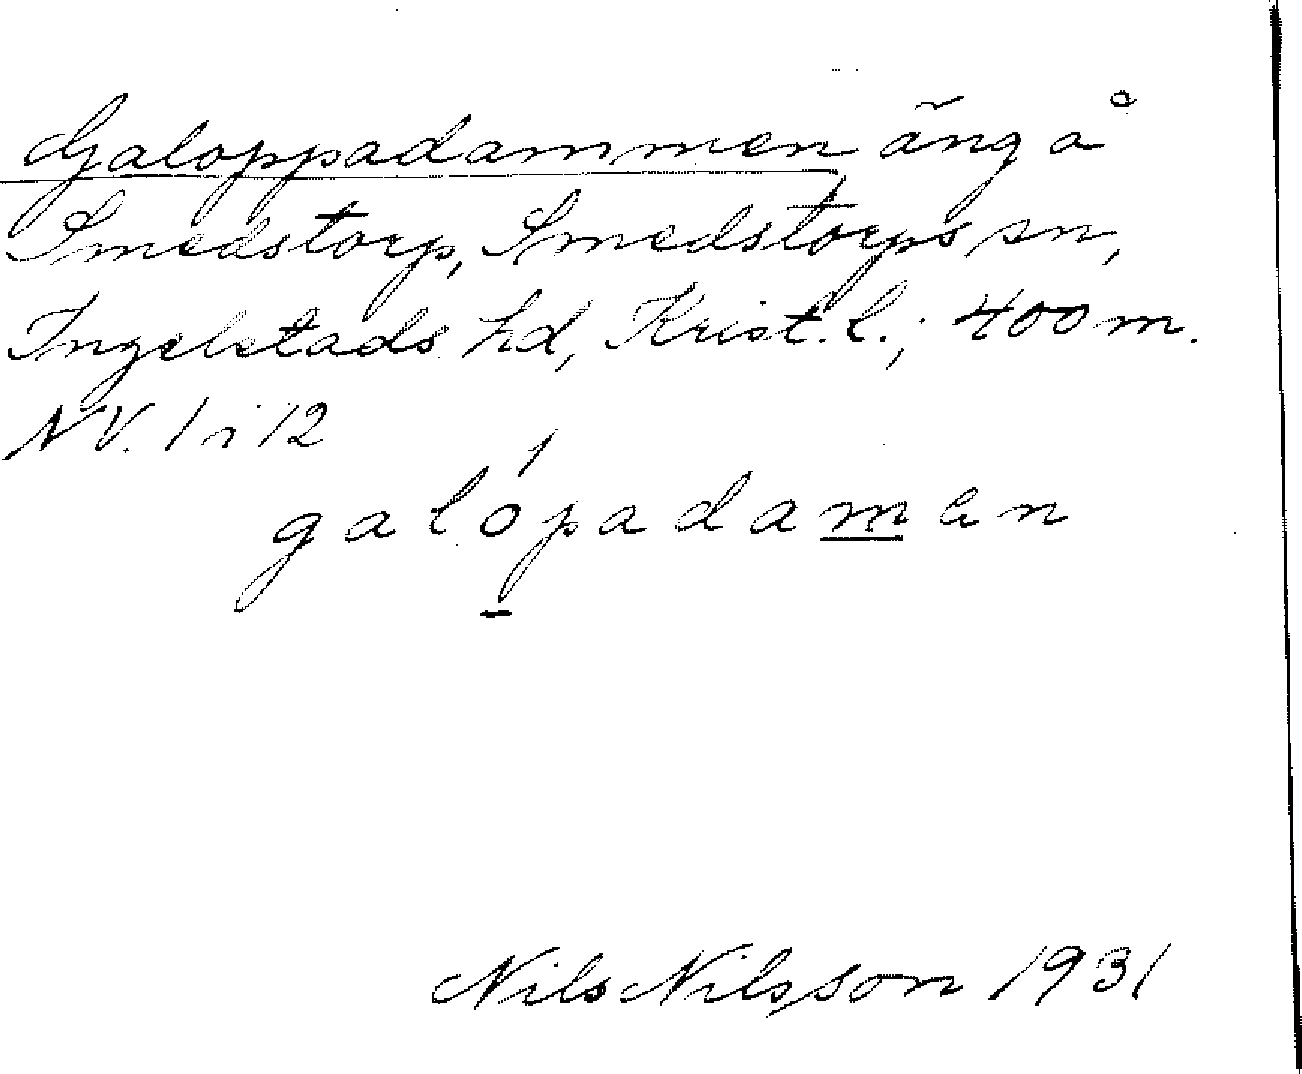 Galoppadammen äng å
Smedstorp, Smedstorps sn,
Ingelstads hd, Krist. l.; 400 m.
NV. 1 i 12
galópadamen
Nils Nilsson 1931